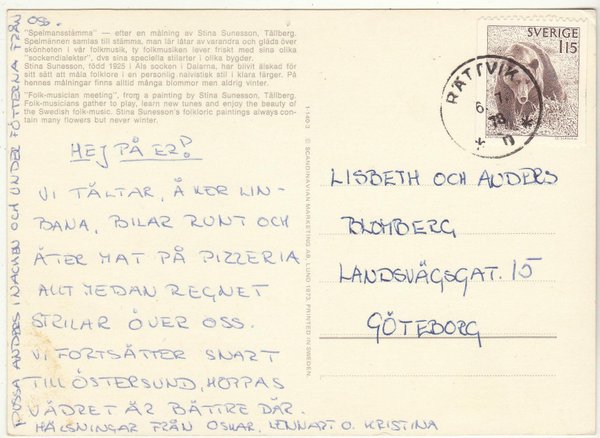 "Spelmansstämma" — efter en målning av Stina Sunesson, Tällberg.
Spelmännen samlas till stämma, man lär låtar av varandra och gläds över
skönheten i vår folkmusik, ty folkmusiken lever friskt med sina olika
"sockendialekter", dvs sina speciella stilarter i olika bygder.
Stina Sunesson, född 1925 i Äls socken i Dalarna, har blivit älskad för
sitt sätt att måla folklore i en personlig naivistisk stil i klara färger. På
hennes målningar finns alltid många blommor men aldrig vinter.
"Folk-musician meeting", froq a painting by Stina Sunesson, Tällberg.
Folk-musicians gather to play, learn new tunes and enjoy the beauty of
the Swedish folk-music. Stina Sunesson's folkloric paintings always con-
tain many flowers but never winter.
HEJ PÅ ER!
VI TÄLTAR, ÅKER LIN-
BANA, BILAR RUNT OCH
ÄTER MAT PÅ PIZZERIA
ALLT MEDAN REGNET
STRILAR ÖVER OSS.
VI FORTSÄTTER SNART
TILL ÖSTERSUND, HOPPAS
VÄDRET ÄR BÄTTRE DÄR.
HÄLSNINGAR FRÅN OSKAR, LENNART O. KRISTINA
PUSSA ANDERS I NACKEN OCH UNDER FÖTTERNA FRÅN OSS.
© SCANDINAVIAN MARKETING AB, LUND 1973. PRINTED IN SWEDEN.
1-146 3
SVERIGE
115
RÄTTVIK
6. 7.
78
LISBETH OCH ANDERS
BLOMBERG
LANDSVÄGSGAT. 15
GÖTEBORG